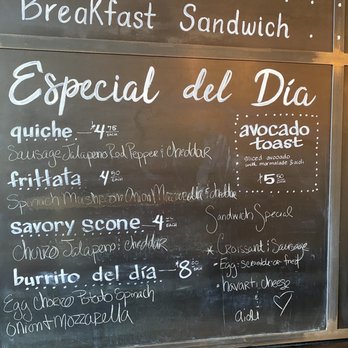 Breakfast Sandwich
Especial del Día
quiche $4.75 EACH
Sausage Jalapeno Red Pepper & Cheddar
frittata 4 EACH
Spinach Mushroom Onion Mozzarella & cheddar
savory scone 4 EACH
Chorizo Jalapeno & cheddar
burrito del día $8
Egg Chorizo Potato Spinach
Onion & Mozzarella
avocado
toast
sliced avocado
with marmalade & oil
$5.50
Sandwich Special
* Croissant & Sausage
- Egg: scramble or fried
- havarti cheese
aioli